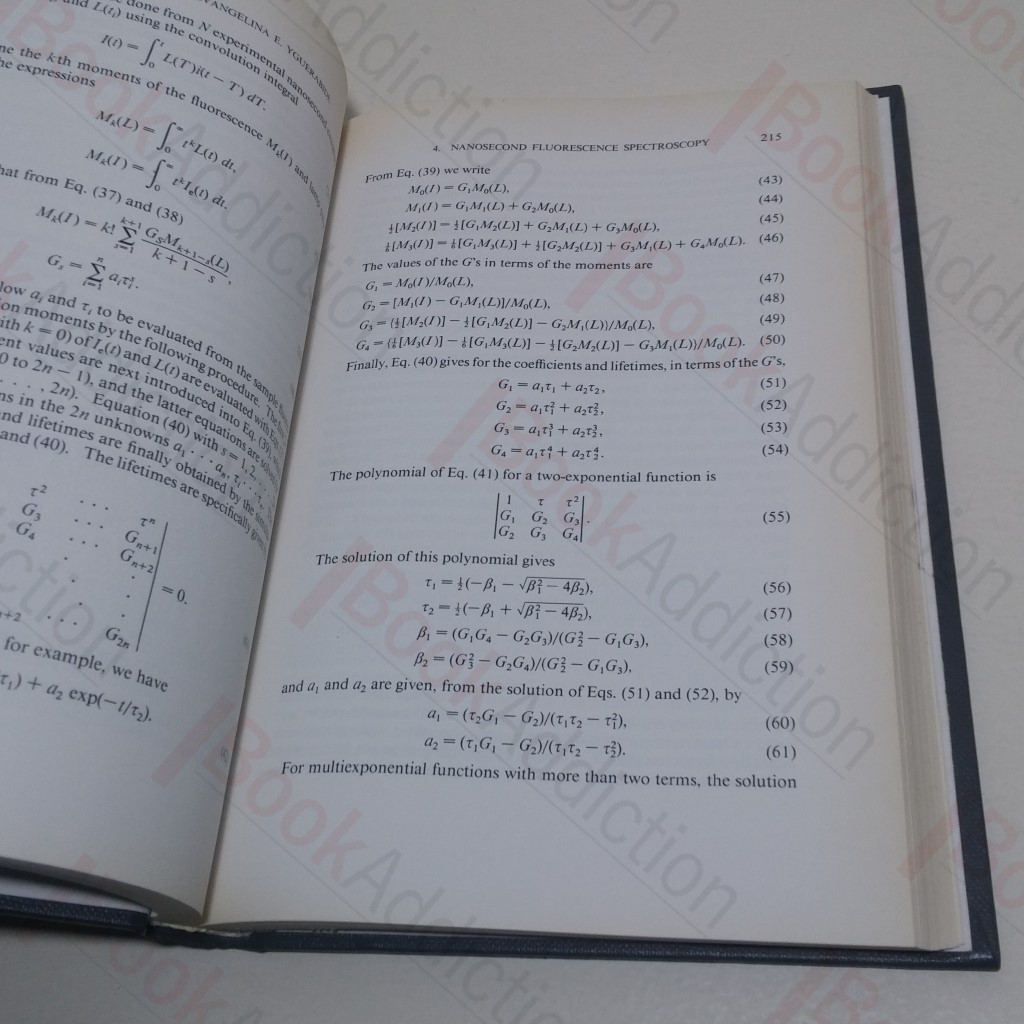 VANGELINA E. YGUERABIDE
done from N experimental nanosecond
and L(tᵢ) using the convolution integral
I(t) = ∫₀ᵗ L(T)i(t − T) dT.
the kth moments of the fluorescence Mₖ(I) and
expressions
Mₖ(L) = ∫₀^∞ tᵏL(t) dt,
Mₖ(I) = ∫₀^∞ tᵏIₑ(t) dt.
hat from Eq. (37) and (38)
Mₖ(I) = k! Σ_{s=1}^{k+1} G_S M_{k+1−s}(L) / k + 1 − s ,
G_s = Σ_{i=1}^{n} aᵢτᵢˢ.
low aᵢ and τᵢ to be evaluated from the sample
ion moments by the following procedure. The
ith k = 0) of Iₑ(t) and L(t) are evaluated with
ent values are next introduced into Eq. (39),
0 to 2n − 1), and the latter equations are
. . . , 2n). Equation (40) with s = 1, 2,
ns in the 2n unknowns a₁ . . . aₙ, τ₁
nd lifetimes are finally obtained by the
and (40). The lifetimes are specifically
τ² . . . τⁿ
G₃ . . . Gₙ₊₁
G₄ . . . Gₙ₊₂
= 0.
ₙ₊₂ . . . G₂ₙ
for example, we have
τ₁) + a₂ exp(−t/τ₂).
4. NANOSECOND FLUORESCENCE SPECTROSCOPY 215
From Eq. (39) we write
M₀(I) = G₁M₀(L), (43)
M₁(I) = G₁M₁(L) + G₂M₀(L), (44)
½[M₂(I)] = ½[G₁M₂(L)] + G₂M₁(L) + G₃M₀(L), (45)
⅙[M₃(I)] = ⅙[G₁M₃(L)] + ½[G₂M₂(L)] + G₃M₁(L) + G₄M₀(L). (46)
The values of the G's in terms of the moments are
G₁ = M₀(I)/M₀(L), (47)
G₂ = [M₁(I) − G₁M₁(L)]/M₀(L), (48)
G₃ = (½[M₂(I)] − ½[G₁M₂(L)] − G₂M₁(L))/M₀(L), (49)
G₄ = (⅙[M₃(I)] − ⅙[G₁M₃(L)] − ½[G₂M₂(L)] − G₃M₁(L))/M₀(L). (50)
Finally, Eq. (40) gives for the coefficients and lifetimes, in terms of the G's,
G₁ = a₁τ₁ + a₂τ₂, (51)
G₂ = a₁τ₁² + a₂τ₂², (52)
G₃ = a₁τ₁³ + a₂τ₂³, (53)
G₄ = a₁τ₁⁴ + a₂τ₂⁴. (54)
The polynomial of Eq. (41) for a two-exponential function is
|1 τ τ²|
|G₁ G₂ G₃|. (55)
|G₂ G₃ G₄|
The solution of this polynomial gives
τ₁ = ½(−β₁ − √β₁² − 4β₂), (56)
τ₂ = ½(−β₁ + √β₁² − 4β₂), (57)
β₁ = (G₁G₄ − G₂G₃)/(G₂² − G₁G₃), (58)
β₂ = (G₃² − G₂G₄)/(G₂² − G₁G₃), (59)
and a₁ and a₂ are given, from the solution of Eqs. (51) and (52), by
a₁ = (τ₂G₁ − G₂)/(τ₁τ₂ − τ₁²), (60)
a₂ = (τ₁G₁ − G₂)/(τ₁τ₂ − τ₂²). (61)
For multiexponential functions with more than two terms, the solution
BookAddiction